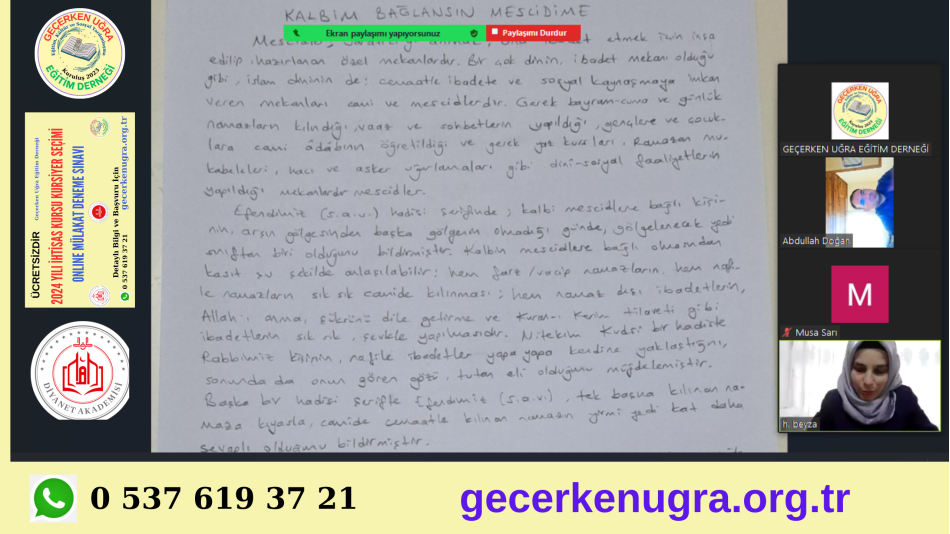 GEÇERKEN UĞRA
EĞİTİM DERNEĞİ
Kuruluş 2023
ÜCRETSİZDİR
Geçerken Uğra Eğitim Derneği
2024 YILI İHTİSAS KURSU KURSİYER SEÇİMİ
ONLINE MÜLAKAT DENEME SINAVI
Detaylı Bilgi ve Başvuru İçin
0 537 619 37 21
gecerkenugra.org.tr
DİYANET AKADEMİSİ
KALBİM BAĞLANSIN MESCİDİME
Ekran paylaşımı yapıyorsunuz
Paylaşımı Durdur
etmek için inşa
edilip hazırlanan özel mekanlardır. Bir çok dinin, ibadet mekanı olduğu
gibi, islam dininin de; cemaatle ibadete ve sosyal kaynaşmaya imkan
veren mekanları cami ve mescidlerdir. Gerek bayram-cuma ve günlük
namazların kılındığı, vaaz ve sohbetlerin yapıldığı, gençlere ve çocuk-
lara cami âdâbının öğretildiği ve gerek yaz kursları, Ramazan mu-
kabeleleri, hacı ve asker uğurlamaları gibi dini-sosyal faaliyetlerin
yapıldığı mekanlardır mescidler.
Efendimiz (s.a.v.) hadisi şerifinde; kalbi mescidlere bağlı kişi-
nin, arşın gölgesinden başka gölgenin olmadığı günde, gölgelenecek yedi
sınıftan biri olduğunu bildirmiştir. Kalbin mescidlere bağlı olmasından
kasıt şu şekilde anlaşılabilir: hem farz/vacip namazların, hem naf-
le namazların sık sık camide kılınması; hem namaz dışı ibadetlerin,
Allah'ı anma, şükrünü dile getirme ve Kuran-ı Kerim tilaveti gibi
ibadetlerin sık sık şevkle yapılmasıdır. Nitekim Kudsi bir hadiste
Rabbimiz kişinin, nafile ibadetler yapa yapa kendine yaklaştığını,
sonunda da onun gören gözü, tutan eli olduğunu müjdelemiştir.
Başka bir hadisi şerifte Efendimiz (s.a.v.), tek başına kılınan na-
maza kıyasla, camide cemaatle kılınan namazın yirmi yedi kat daha
sevaplı olduğunu bildirmiştir.
GEÇERKEN UĞRA
EĞİTİM DERNEĞİ
GEÇERKEN UĞRA EĞİTİM DERNEĞİ
Abdullah Doğan
M
Musa Sarı
h. beyza
0 537 619 37 21
gecerkenugra.org.tr